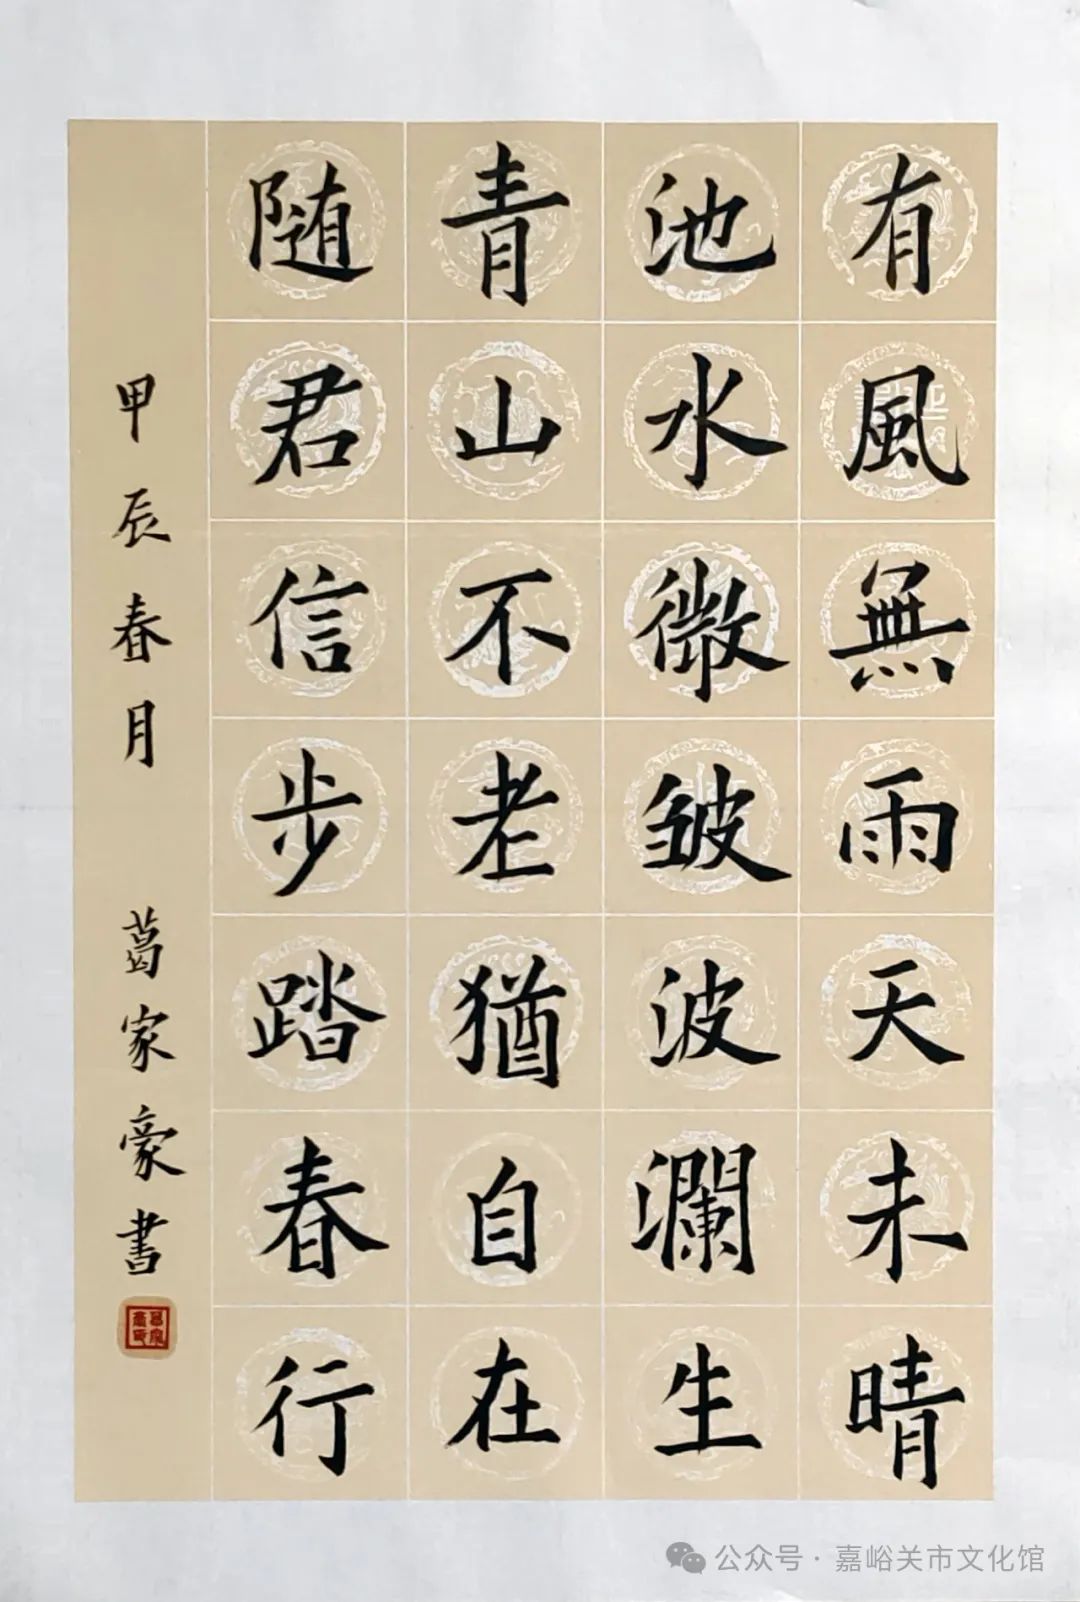 有風無雨天未晴
池水微皱波瀾生
青山不老猶自在
随君信步踏春行
甲辰春月 葛家豪書
公众号·嘉峪关市文化馆